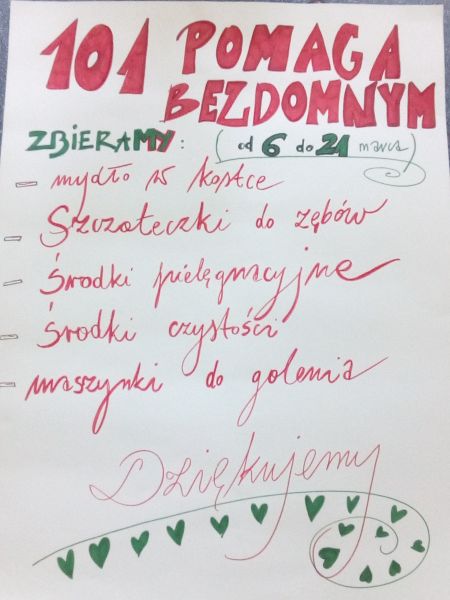 101 POMAGA
BEZDOMNYM
ZBIERAMY: (od 6 do 21 marca)
- mydło w kostce
- Szczoteczki do zębów
- Środki pielęgnacyjne
- Środki czystości
- maszynki do golenia
Dziękujemy